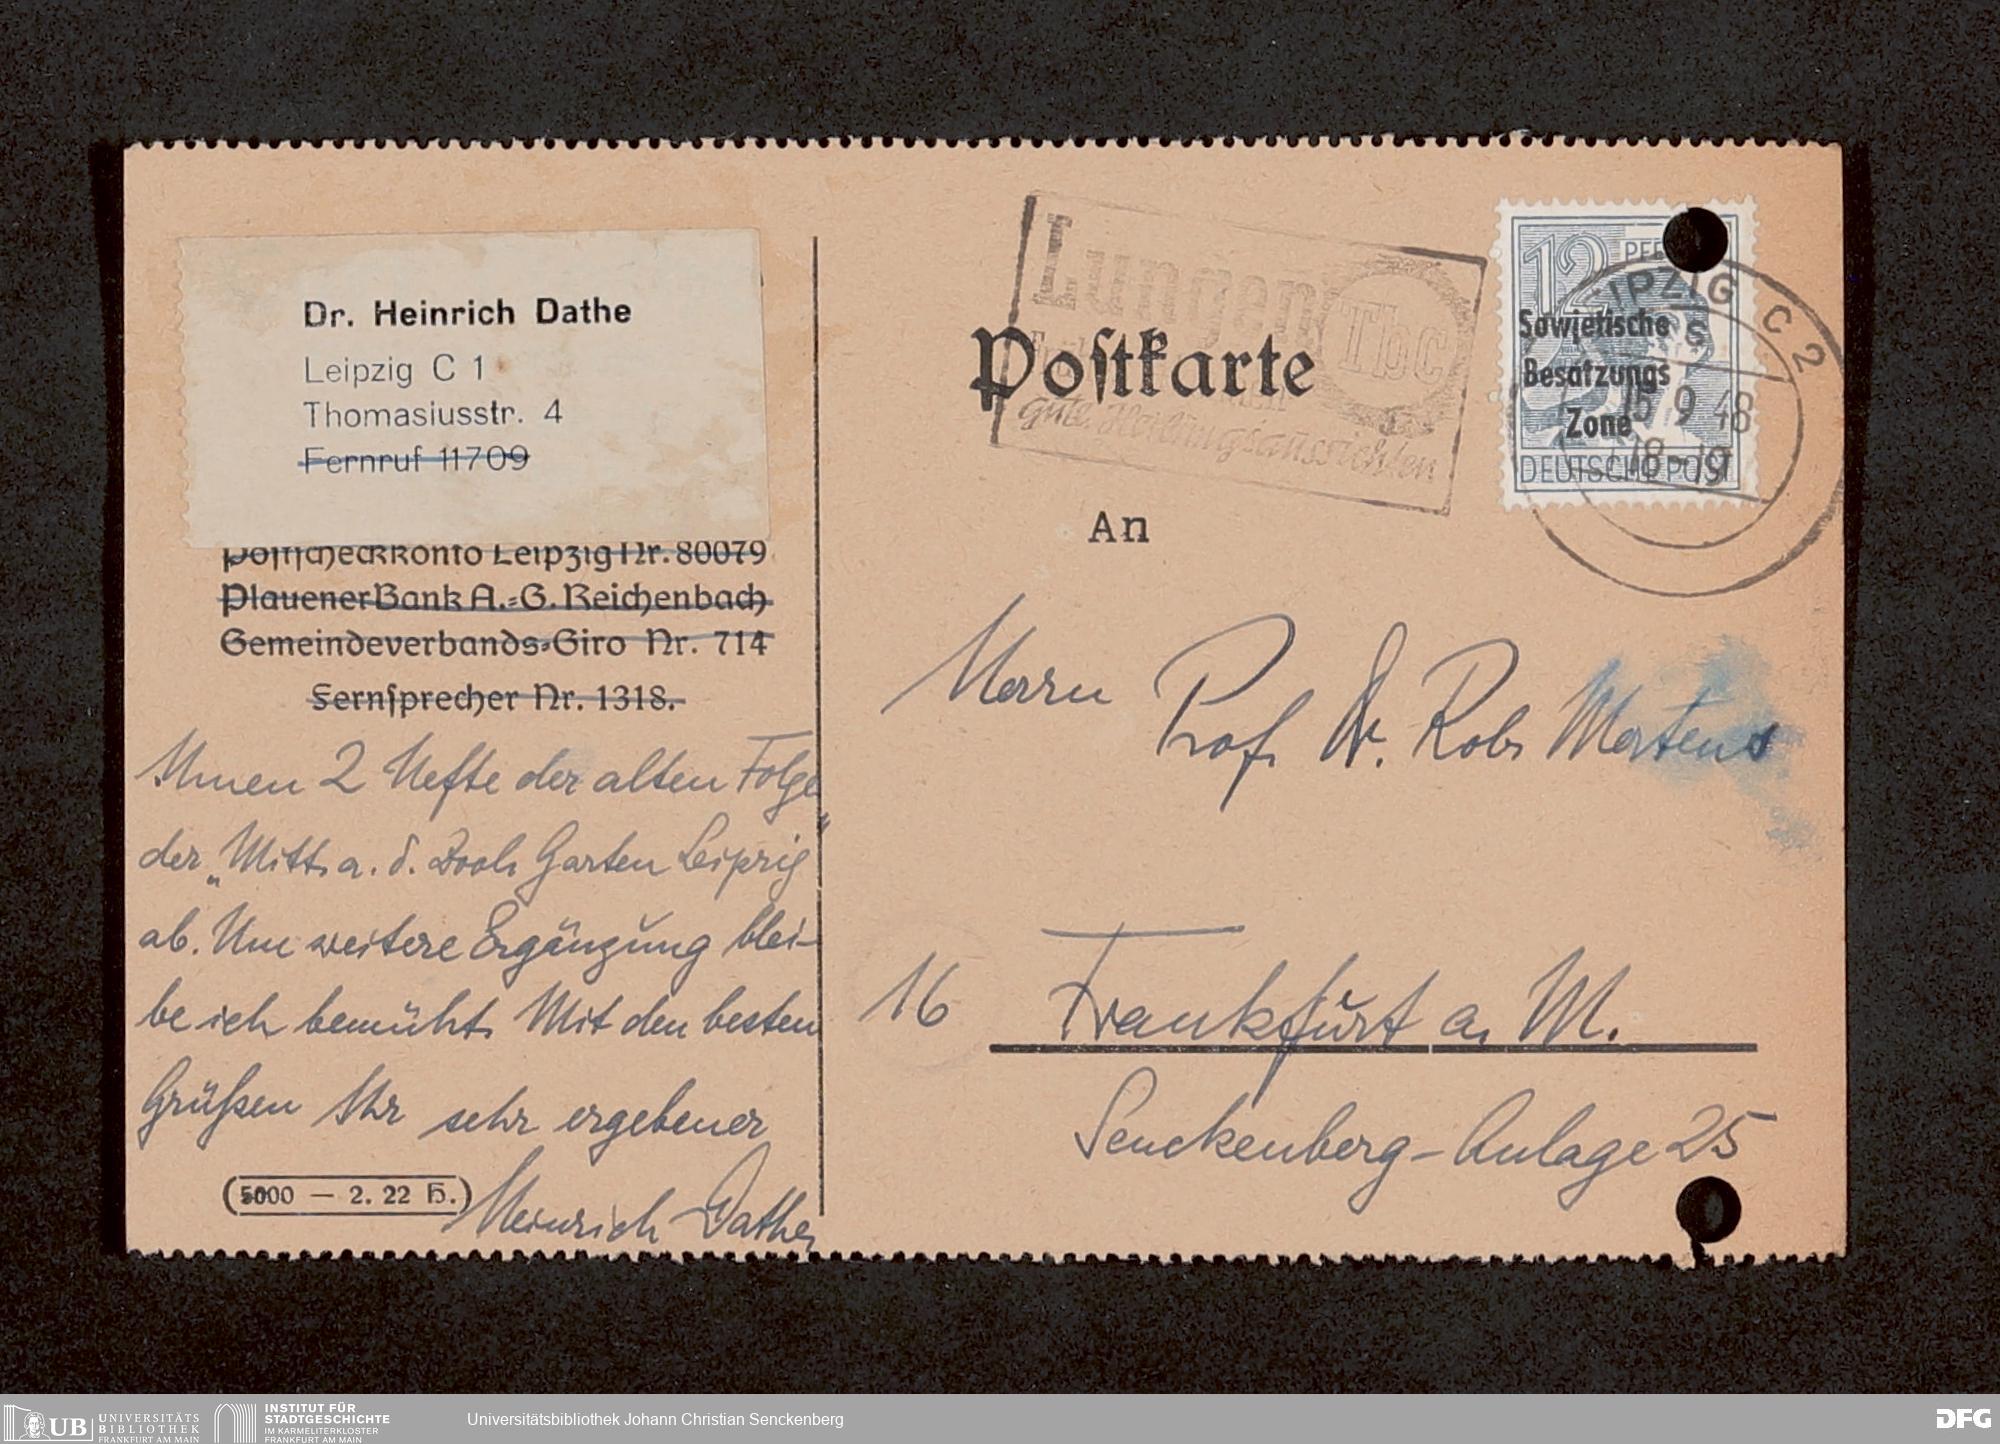 Dr. Heinrich Dathe
Leipzig C 1
Thomasiusstr. 4
Fernruf 11709
Postscheckkonto Leipzig Nr. 80079
Plauener Bank A.=G. Reichenbach
Gemeindeverbands=Giro Nr. 714
Fernsprecher Nr. 1318.
Ihnen 2 Hefte der alten Folge
der „Mitt. a. d. Zool. Garten Leipzig“
ab. Um weitere Ergänzung blei-
be ich bemüht. Mit den besten
Grüßen Ihr sehr ergebener
Heinrich Dathe
(5000 — 2. 22 H.)
Lungen
Tbc
gute Heilungsaussichten
Postkarte
12 PF
Sowjetische
Besatzungs
Zone
DEUTSCHE POST
LEIPZIG C 2
s
15 9 48
18-19
An
Herrn Prof. Dr. Rob. Mertens
16 Frankfurt a. M.
Senckenberg-Anlage 25
UB UNIVERSITÄTS
BIBLIOTHEK
FRANKFURT AM MAIN
INSTITUT FÜR
STADTGESCHICHTE
IM KARMELITERKLOSTER
FRANKFURT AM MAIN
Universitätsbibliothek Johann Christian Senckenberg
DFG